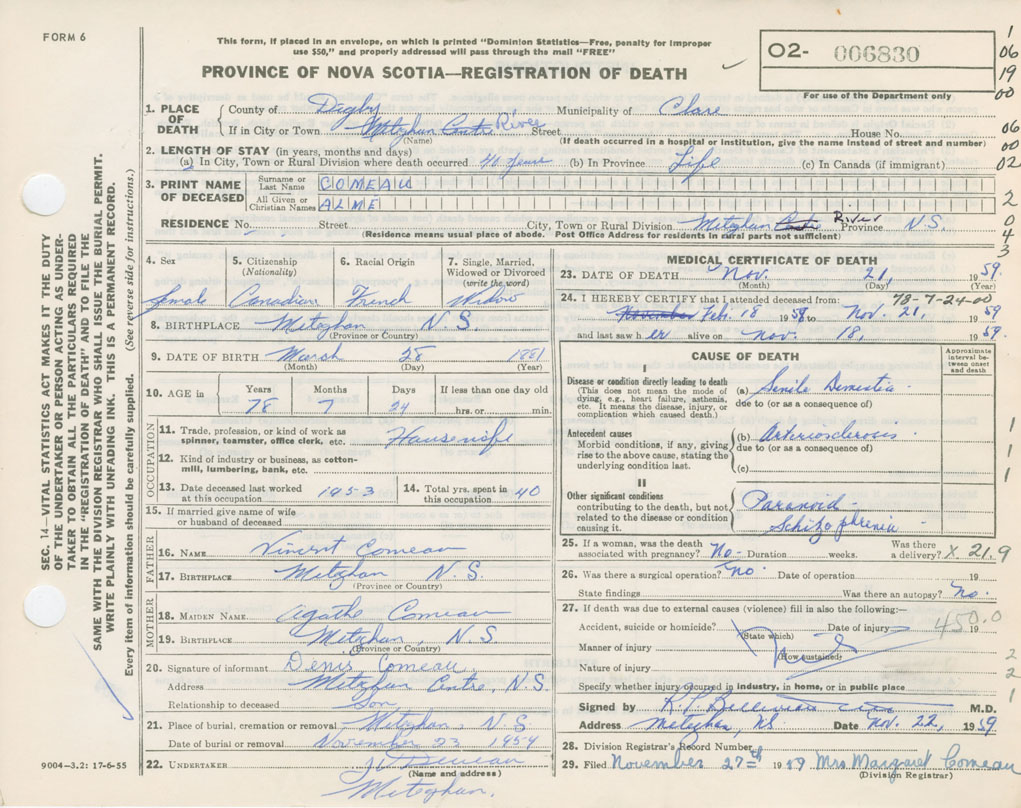 FORM 6
This form, if placed in an envelope, on which is printed "Dominion Statistics—Free, penalty for improper
use $50," and properly addressed will pass through the mail "FREE"
PROVINCE OF NOVA SCOTIA—REGISTRATION OF DEATH
O2- 006830
For use of the Department only
1
06
19
00
06
00
02
2
0
4
3
1. PLACE OF DEATH
County of Digby Municipality of Clare
If in City or Town Meteghan Centre River Street House No.
(Name) (If death occurred in a hospital or institution, give the name instead of street and number)
2. LENGTH OF STAY (in years, months and days)
(a) In City, Town or Rural Division where death occurred 40 years (b) In Province Life (c) In Canada (if immigrant)
3. PRINT NAME OF DECEASED
Surname or Last Name COMEAU
All Given or Christian Names ALME
RESIDENCE No. Street City, Town or Rural Division Meteghan Centre River Province N.S.
(Residence means usual place of abode. Post Office Address for residents in rural parts not sufficient)
SEC. 14—VITAL STATISTICS ACT MAKES IT THE DUTY
OF THE UNDERTAKER OR PERSON ACTING AS UNDER-
TAKER TO OBTAIN ALL THE PARTICULARS REQUIRED
IN THE "REGISTRATION OF DEATH" AND TO FILE THE
SAME WITH THE DIVISION REGISTRAR WHO SHALL ISSUE THE BURIAL PERMIT.
WRITE PLAINLY WITH UNFADING INK. THIS IS A PERMANENT RECORD.
Every item of information should be carefully supplied. (See reverse side for instructions.)
4. Sex
female
5. Citizenship
(Nationality)
Canadian
6. Racial Origin
French
7. Single, Married,
Widowed or Divorced
(write the word)
Widow
8. BIRTHPLACE Meteghan N.S.
(Province or Country)
9. DATE OF BIRTH March 28 1881
(Month) (Day) (Year)
10. AGE in
Years Months Days If less than one day old
78 7 24 hrs. or min.
OCCUPATION
11. Trade, profession, or kind of work as
spinner, teamster, office clerk, etc. Housewife
12. Kind of industry or business, as cotton-
mill, lumbering, bank, etc.
13. Date deceased last worked
at this occupation 1953
14. Total yrs. spent in
this occupation 40
15. If married give name of wife
or husband of deceased
FATHER
16. NAME Vincent Comeau
17. BIRTHPLACE Meteghan N.S.
(Province or Country)
MOTHER
18. MAIDEN NAME Agathe Comeau
19. BIRTHPLACE Meteghan, N.S
(Province or Country)
20. Signature of informant Denis Comeau
Address Meteghan Centre, N.S.
Relationship to deceased Son
21. Place of burial, cremation or removal Meteghan N-S
Date of burial or removal November 23 1959
22. UNDERTAKER
(Name and address)
Meteghan.
9004—3.2: 17-6-55
MEDICAL CERTIFICATE OF DEATH
23. DATE OF DEATH Nov. 21, 1959.
(Month) (Day) (Year)
78-7-24-00
24. I HEREBY CERTIFY that I attended deceased from:
November Feb. 18 1958 to Nov. 21, 1959
and last saw her alive on Nov. 18, 1959.
CAUSE OF DEATH
Approximate
interval be-
tween onset
and death
I
Disease or condition directly leading to death
(This does not mean the mode of
dying, e.g., heart failure, asthenia,
etc. It means the disease, injury, or
complication which caused death.)
(a) Senile Dementia
due to (or as a consequence of)
Antecedent causes
Morbid conditions, if any, giving
rise to the above cause, stating the
underlying condition last.
(b) Arteriosclerosis
due to (or as a consequence of)
(c)
1
1
1
II
Other significant conditions
contributing to the death, but not
related to the disease or condition
causing it.
Paranoid
Schizophrenia
25. If a woman, was the death
associated with pregnancy? No- Duration weeks. Was there
a delivery? X 21.9
26. Was there a surgical operation? no. Date of operation 19
State findings Was there an autopsy? no.
27. If death was due to external causes (violence) fill in also the following:—
Accident, suicide or homicide? Date of injury 19
(State which)
450.0
Manner of injury
(How sustained)
Nature of injury
2
2
1
Specify whether injury occurred in industry, in home, or in public place
Signed by M.D.
Address Meteghan, NS. Date Nov. 22, 1959
28. Division Registrar's Record Number
29. Filed November 27th 1959 Mrs Margaret Comeau
(Division Registrar)